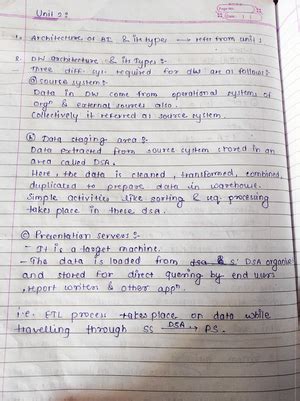 Unit 2:
1. Architecture of BI & its types → refer from unit 1
2. DW architecture & its Types:-
Three diff. sys. required for DW are as follows:
(a) source system:-
Data in DW come from operational systems of
orgn & external sources also.
Collectively it referred as source system.
(b) Data staging area:-
Data extracted from source system stored in an
area called DSA.
Here, the data is cleaned, transformed, combined,
duplicated to prepare data in warehouse.
Simple activities like sorting & sq. processing
takes place in these dsa.
(c) Presentation servers:-
- It is a target machine.
- The data is loaded from DSA organise
and stored for direct quering by end users
, report writers & other appn.
i.e. ETL process takes place on data while
travelling through SS DSA→ PS.